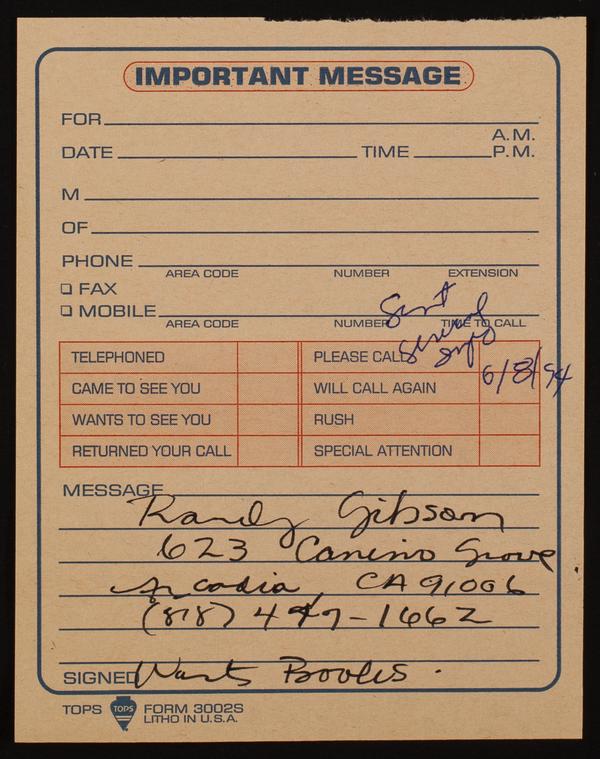 IMPORTANT MESSAGE
FOR
A.M.
DATE TIME P.M.
M
OF
PHONE
AREA CODE NUMBER EXTENSION
☐ FAX
☐ MOBILE
AREA CODE NUMBER TIME TO CALL
Sent
General
Info
6/8/94
TELEPHONED PLEASE CALL
CAME TO SEE YOU WILL CALL AGAIN
WANTS TO SEE YOU RUSH
RETURNED YOUR CALL SPECIAL ATTENTION
MESSAGE
Randy Gibson
623 Camino Grove
Arcadia, CA 91006
(818) 447-1662
SIGNED Wants Books.
TOPS TOPS FORM 3002S
LITHO IN U.S.A.